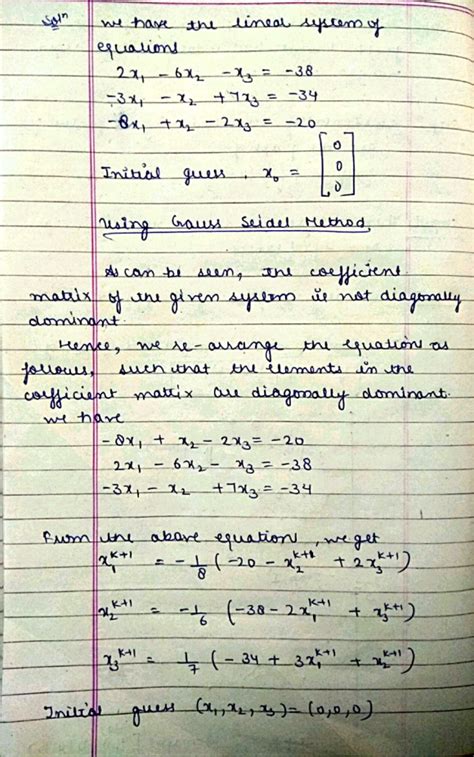 Solⁿ we have the linear system of
equations
2x₁ - 6x₂ - x₃ = -38
-3x₁ - x₂ + 7x₃ = -34
-8x₁ + x₂ - 2x₃ = -20
Initial guess, x₀ = [0 0 0]
Using Gauss Seidel Method.
As can be seen, the coefficient
matrix of the given system is not diagonally
dominant.
Hence, we re-arrange the equation as
follows, such that the elements in the
coefficient matrix are diagonally dominant.
we have
-8x₁ + x₂ - 2x₃ = -20
2x₁ - 6x₂ - x₃ = -38
-3x₁ - x₂ + 7x₃ = -34
From the above equation, we get
x₁^{k+1} = -1/8 (-20 - x₂^{k+1} + 2x₃^{k+1})
x₂^{k+1} = -1/6 (-38 - 2x₁^{k+1} + x₃^{k+1})
x₃^{k+1} = 1/7 (-34 + 3x₁^{k+1} + x₂^{k+1})
Initial guess (x₁, x₂, x₃) = (0,0,0)